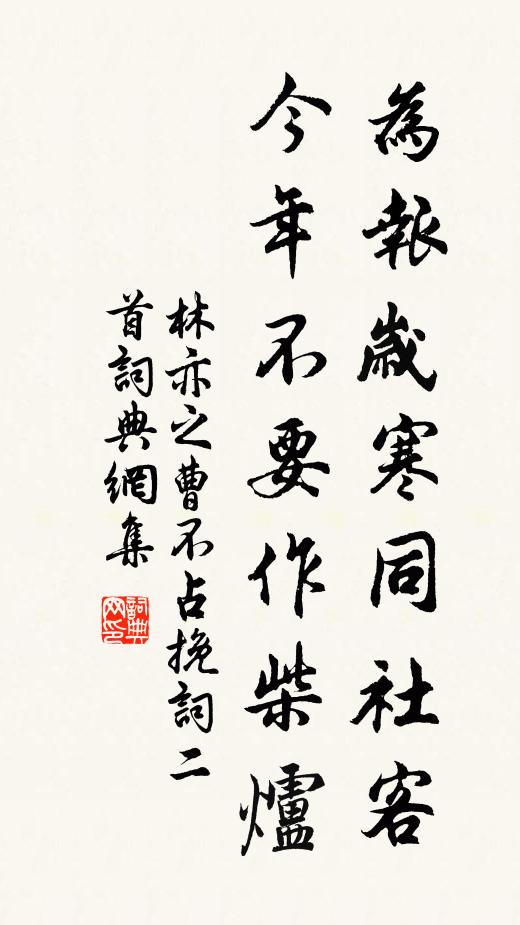 為報歲寒同社客
今年不要作柴爐
林亦之曹不占挽詞二
首詞典網集
詞典
网印